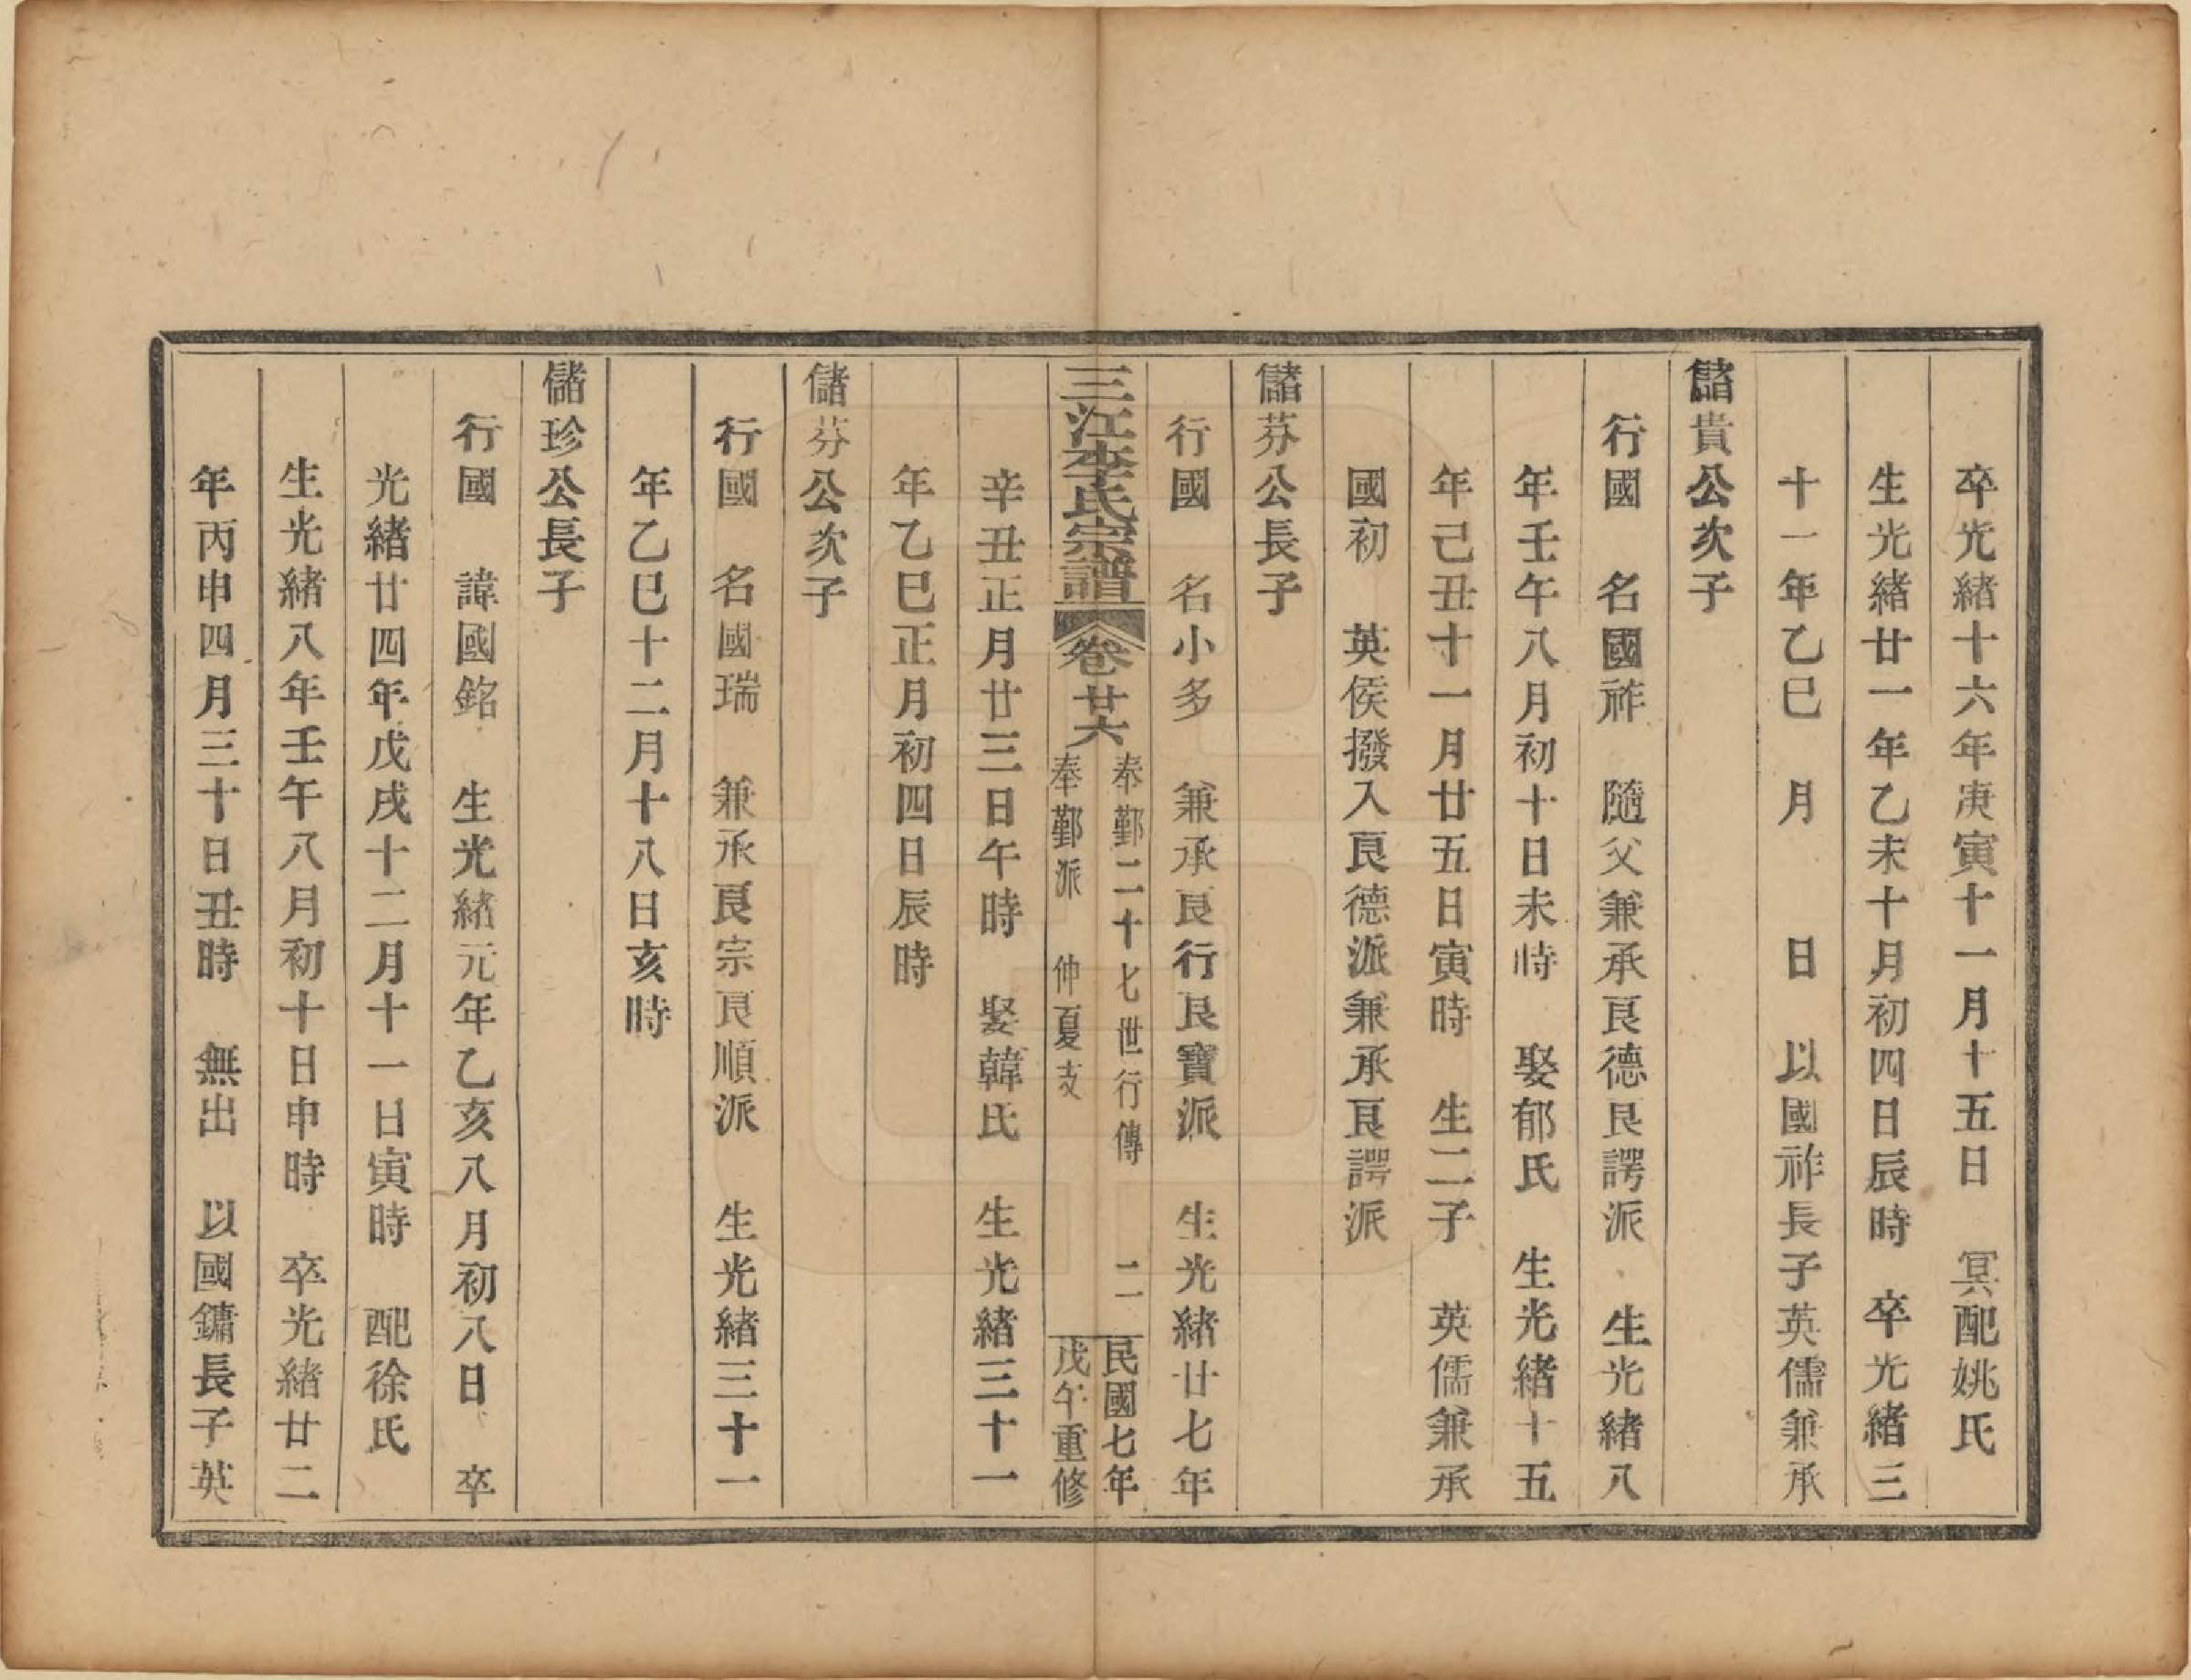 卒光緒十六年庚寅十一月十五日　冥配姚氏
生光緒廿一年乙未十月初四日辰時　卒光緒三
十一年乙巳　月　　日　以國祚長子英儒兼承
儲貴公次子
行國　名國祚　隨父兼承良德良諤派　生光緒八
年壬午八月初十日未時　娶郁氏　生光緒十五
年己丑十一月廿五日寅時　生二子　英儒兼承
國初　英侯撥入良德派兼承良諤派
儲芬公長子
行國　名小多　兼承良行良寶派　生光緒廿七年
三江李氏宗譜　卷廿六　奉鄞二十七世行傳　二　民國七年
奉鄞派　仲夏支　戊午重修
辛丑正月廿三日午時　娶韓氏　生光緒三十一
年乙巳正月初四日辰時
儲芬公次子
行國　名國瑞　兼承良宗良順派　生光緒三十一
年乙巳十二月十八日亥時
儲珍公長子
行國　諱國銘　生光緒元年乙亥八月初八日　卒
光緒廿四年戊戌十二月十一日寅時　配徐氏
生光緒八年壬午八月初十日申時　卒光緒廿二
年丙申四月三十日丑時　無出　以國鏞長子英